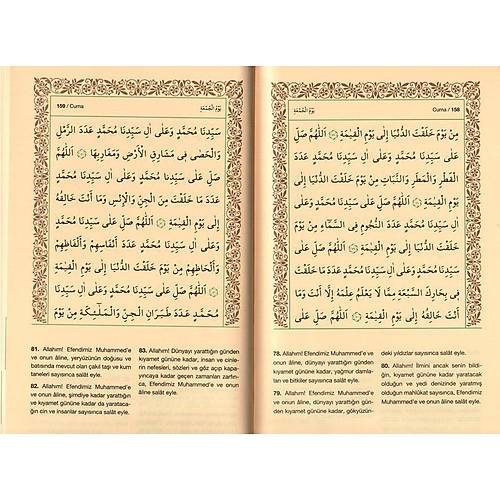 159 / Cuma
يَوْمُ الْجُمْعَةِ
سَيِّدِنَا مُحَمَّدٍ وَعَلَى اٰلِ سَيِّدِنَا مُحَمَّدٍ عَدَدَ الرَّمْلِ
وَالْحَصٰى فِى مَشَارِقِ الْاَرْضِ وَمَغَارِبِهَا اَللّٰهُمَّ
صَلِّ عَلٰى سَيِّدِنَا مُحَمَّدٍ وَعَلٰى اٰلِ سَيِّدِنَا مُحَمَّدٍ
عَدَدَ مَا خَلَقْتَ مِنَ الْجِنِّ وَالْاِنْسِ وَمَا اَنْتَ خَالِقُهُ
اِلٰى يَوْمِ الْقِيٰمَةِ اَللّٰهُمَّ صَلِّ عَلٰى سَيِّدِنَا مُحَمَّدٍ
وَعَلٰى اٰلِ سَيِّدِنَا مُحَمَّدٍ عَدَدَ اَنْفَاسِهِمْ وَاَلْفَاظِهِمْ
وَاَلْحَاظِهِمْ مِنْ يَوْمِ خَلَقْتَ الدُّنْيَا اِلٰى يَوْمِ الْقِيٰمَةِ
اَللّٰهُمَّ صَلِّ عَلٰى سَيِّدِنَا مُحَمَّدٍ وَعَلٰى اٰلِ سَيِّدِنَا
مُحَمَّدٍ عَدَدَ طَيَرَانِ الْجِنِّ وَالْمَلٰٓئِكَةِ مِنْ يَوْمِ
81. Allahım! Efendimiz Muhammed'e
ve onun âline, yeryüzünün doğusu ve
batısında mevcut olan çakıl taşı ve kum
taneleri sayısınca salât eyle.
82. Allahım! Efendimiz Muhammed'e
ve onun âline, şimdiye kadar yarattığın
ve kıyamet gününe kadar da yarataca-
ğın cin ve insanlar sayısınca salât eyle.
83. Allahım! Dünyayı yarattığın günden
kıyamet gününe kadar, insan ve cinle-
rin nefesleri, sözleri ve göz açıp kapa-
yıncaya kadar geçen zamanları zarfın-
ca, Efendimiz Muhammed'e ve onun
âline salât eyle.
يَوْمُ الْجُمْعَةِ
Cuma / 158
مِنْ يَوْمِ خَلَقْتَ الدُّنْيَا اِلٰى يَوْمِ الْقِيٰمَةِ اَللّٰهُمَّ صَلِّ
عَلٰى سَيِّدِنَا مُحَمَّدٍ وَعَلٰى اٰلِ سَيِّدِنَا مُحَمَّدٍ عَدَدَ
الْقَطْرِ وَالْمَطَرِ وَالنَّبَاتِ مِنْ يَوْمِ خَلَقْتَ الدُّنْيَا اِلٰى
يَوْمِ الْقِيٰمَةِ اَللّٰهُمَّ صَلِّ عَلٰى سَيِّدِنَا مُحَمَّدٍ وَعَلٰى اٰلِ
سَيِّدِنَا مُحَمَّدٍ عَدَدَ النُّجُومِ فِى السَّمَٓاءِ مِنْ يَوْمِ
خَلَقْتَ الدُّنْيَا اِلٰى يَوْمِ الْقِيٰمَةِ اَللّٰهُمَّ صَلِّ عَلٰى
سَيِّدِنَا مُحَمَّدٍ وَعَلٰى اٰلِ سَيِّدِنَا مُحَمَّدٍ عَدَدَ مَا خَلَقْتَ
فِى بِحَارِكَ السَّبْعَةِ مِمَّا لَا يَعْلَمُ عِلْمَهُ اِلَّا اَنْتَ وَمَا
اَنْتَ خَالِقُهُ اِلٰى يَوْمِ الْقِيٰمَةِ اَللّٰهُمَّ صَلِّ عَلٰى
78. Allahım! Efendimiz Muhammed'e
ve onun âline, dünyayı yarattığın gün-
den kıyamet gününe kadar, yağmur damla-
ları ve bitkiler sayısınca salât eyle.
79. Allahım! Efendimiz Muhammed'e
ve onun âline, dünyayı yarattığın gün-
den kıyamet gününe kadar, gökyüzün-
deki yıldızlar sayısınca salât eyle.
80. Allahım! İlmini ancak senin bildi-
ğin, kıyamet gününe kadar yaratacak
olduğun ve yedi denizinde yaratmış
olduğun mahlukat sayısınca, Efendimiz
Muhammed'e ve onun âline salât eyle.